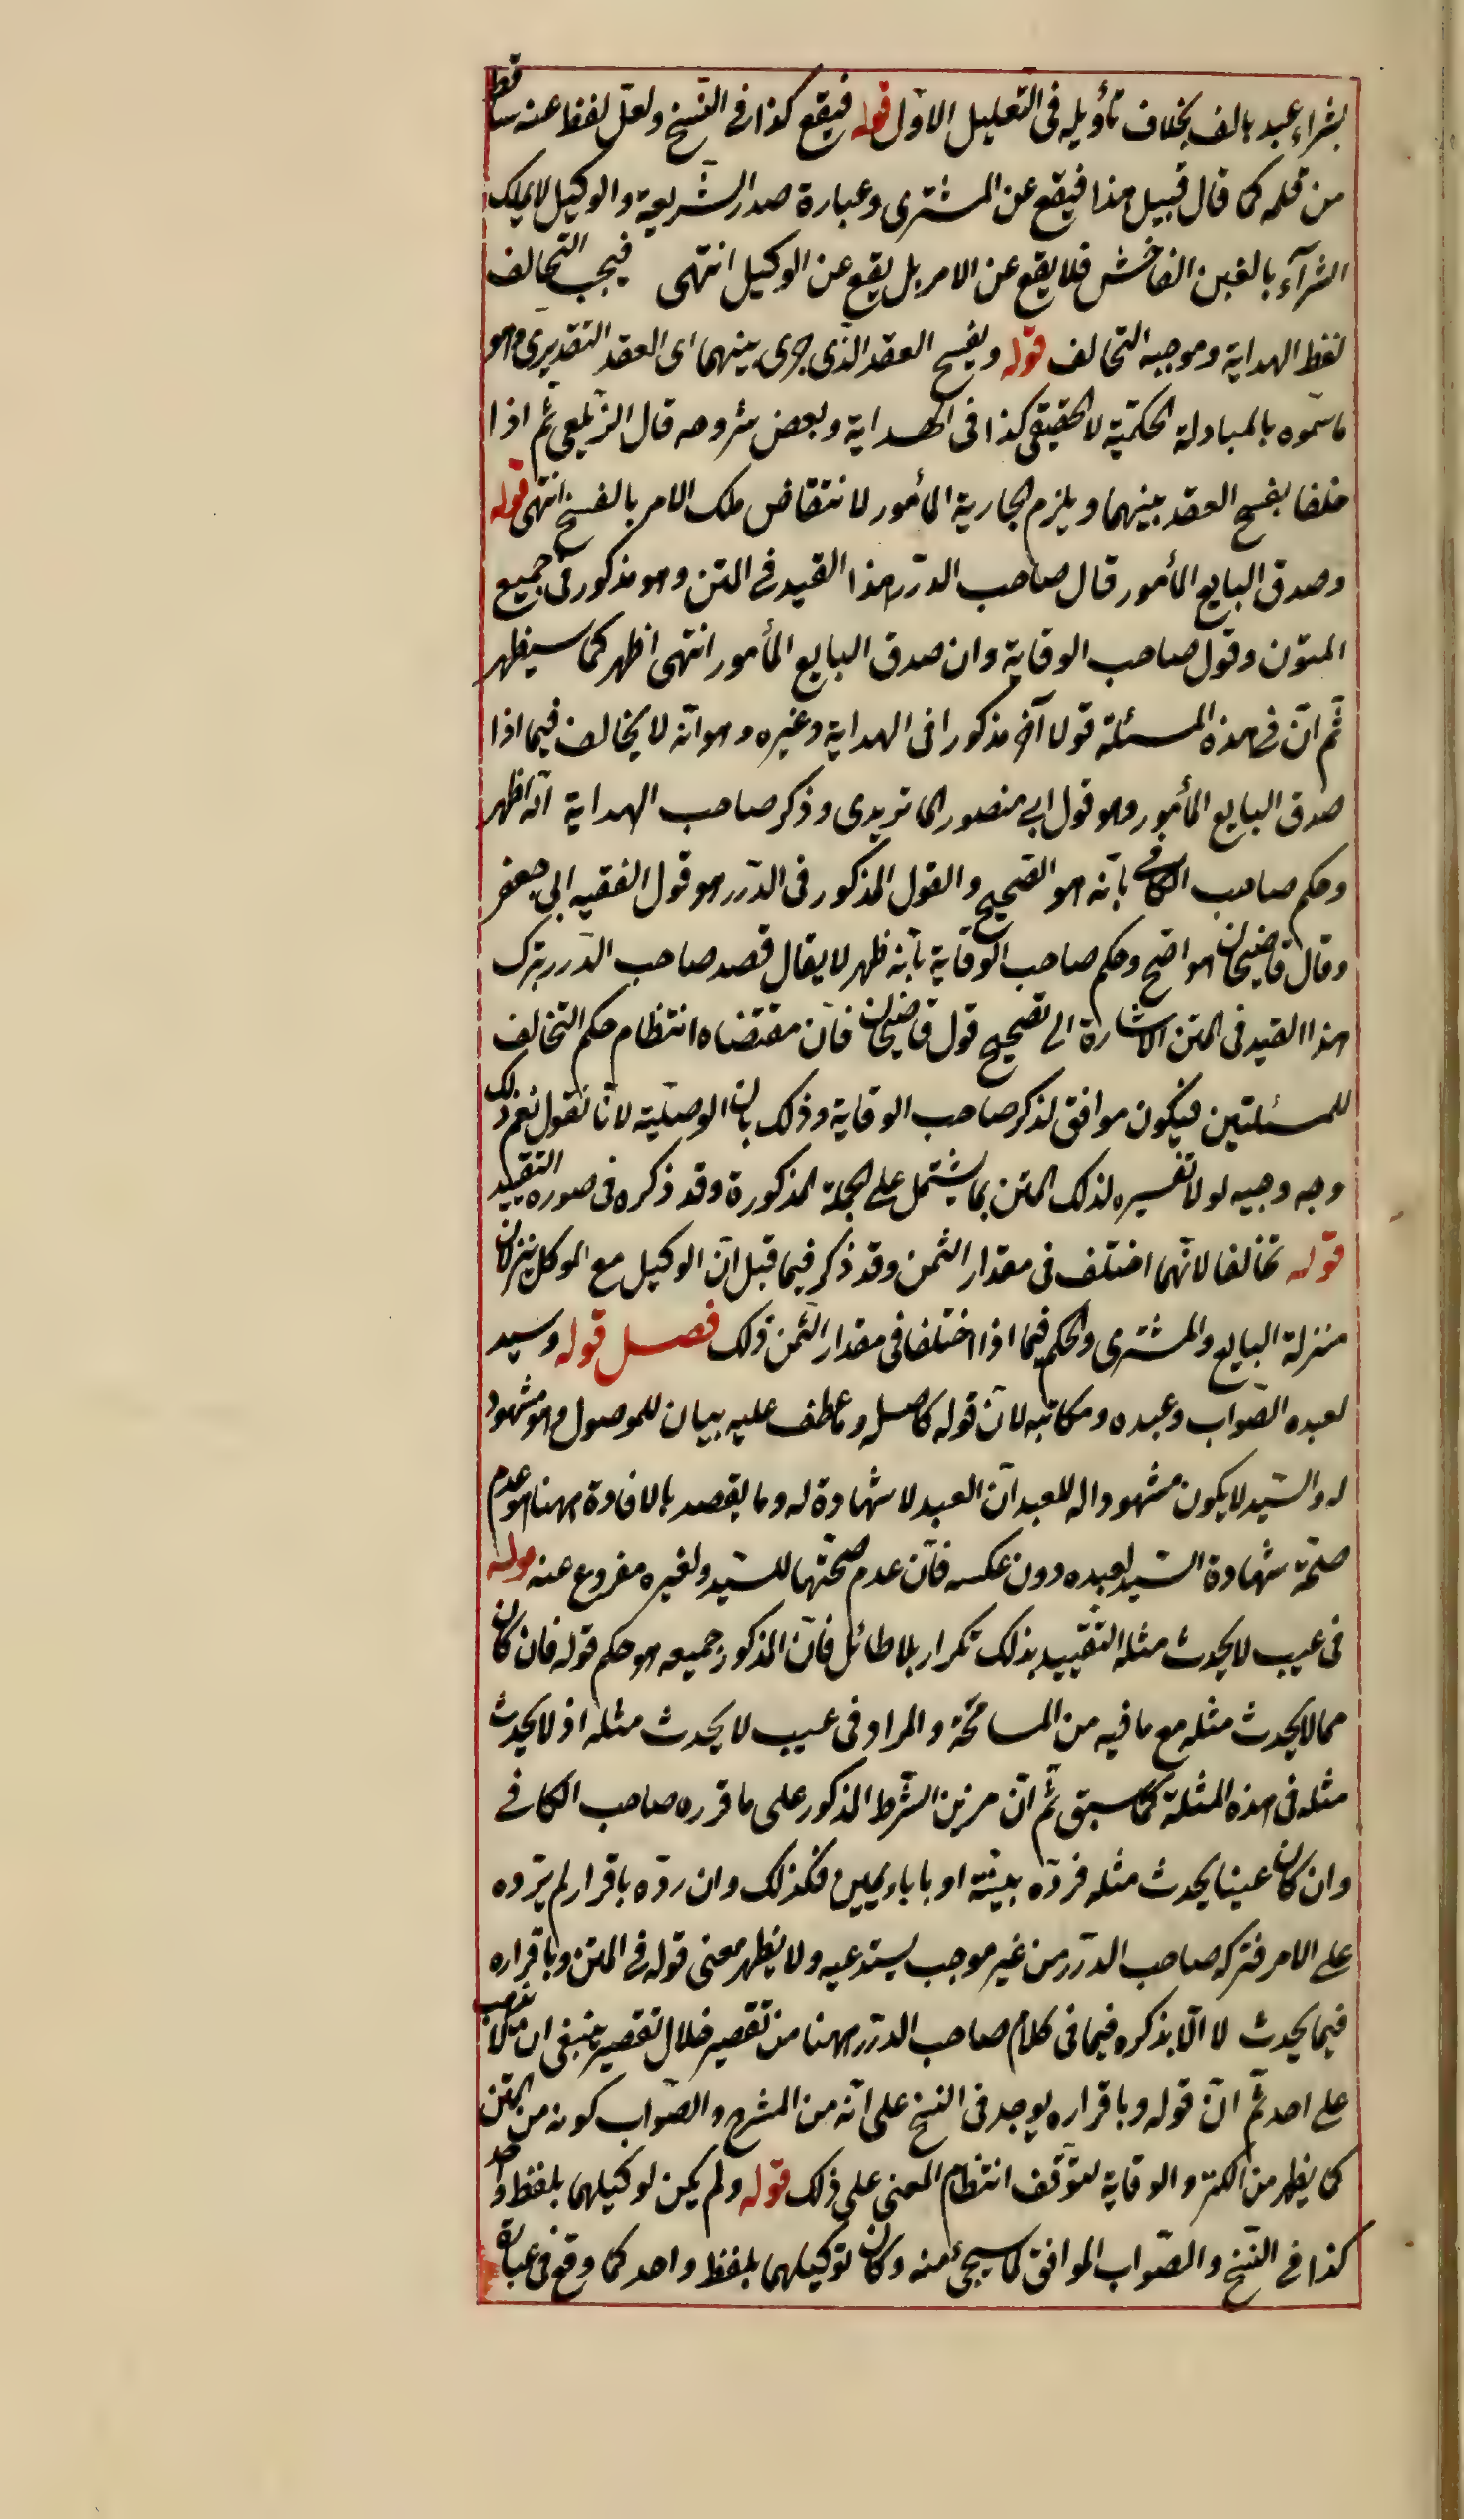 بشراء عبد بالف بخلاف تأويله فى التعليل الاول قوله فيقع كذا فى النسخ ولعل لفظ عنه ساقط
من قلمه كما قال قبيل هذا فيقع عن المشترى وعبارة صدر الشريعة والوكيل لا يملك
الشرآء بالغبن الفاحش فلا يقع عن الامر بل يقع عن الوكيل انتهى فيجب التحالف
لفظ الهداية وموجبه التحالف قوله ويفسخ العقد الذى جرى بينهما اى العقد التقديرى وهو
ما سموه بالمبادلة الحكمية لا الحقيقى كذا فى الهداية وبعض شروحه قال الزيلعى ثم اذا
حلفا يفسخ العقد بينهما ويلزم الجارية المأمور لانتقاض ملك الامر بالفسخ انتهى قوله
وصدق البايع المأمور قال صاحب الدرر هذا القيد فى المتن وهو مذكور فى جميع
المتون وقول صاحب الوقاية وان صدق البايع المأمور انتهى اظهر كما سيظهر
ثم ان فى هذه المسئلة قولا آخر مذكورا فى الهداية وغيره وهو انه لا يخالف فيما اذا
صدق البايع المأمور وهو قول ابى منصور الماتريدى وذكر صاحب الهداية انه اظهر
وحكم صاحب الكافى بانه هو الصحيح والقول المذكور فى الدرر هو قول الفقيه ابى جعفر
وقال قاضيخان هو اصح وحكم صاحب الوقاية بانه ظهر لا يقال قصد صاحب الدرر بترك
هذا القيد فى المتن الاشارة الى تصحيح قول قاضيخان فان مقتضاه انتظام حكم التخالف
للمسئلتين فيكون موافق لذكر صاحب الوقاية وذلك بان الوصلية لانا نقول نعم ذلك
وجه وجيه لولا تفسيره لذلك المتن بما يشتمل على الجملة المذكورة وقد ذكره فى صوره التقييد
قوله تخالفا لانهما اختلف فى مقدار الثمن وقد ذكر فيما قبل ان الوكيل مع الموكل ينزلان
منزلة البايع والمشترى والحكم فيما اذا اختلفا فى مقدار الثمن ذلك فصل قوله وسيد
لعبده الصواب وعبده ومكاتبه لان قوله كاصله وما عطف عليه بيان للموصول وهو مشهود
له والسيد لا يكون مشهودا له للعبد ان العبد لا شهادة له وما يقصد بالافادة ههنا هو عدم
صحة شهادة السيد لعبده دون عكسه فان عدم صحتها للسيد ولغيره مفروع عنه قوله
فى عيب لا يحدث مثله التقييد بذلك تكرار بلا طائل فان المذكور جميعه هو حكم قوله فان كان
مما لا يحدث مثله مع ما فيه من المسامحة والمراد فى عيب لا يحدث مثله اذ لا يحدث
مثله فى هذه المثلة كما سبق ثم ان من بين الشرط المذكور على ما قرره صاحب الكافى
وان كان عينا يحدث مثله فرده ببينة او باباء يمين فكذلك وان رده باقرار لم يرده
على الامر فتركه صاحب الدرر من غير موجب يستدعيه ولا يظهر معنى قوله فى المتن وباقراره
فيما يحدث لا الا بذكره فيما فى كلام صاحب الدرر ههنا من تقصير خلال تقصير ينبغى ان
على احد ثم ان قوله وباقراره يوجد فى النسخ على انه من الشرح والصواب كونه من المتن
كما يظهر من الكنز والوقاية لتوقف انتظام المعنى على ذلك قوله ولم يكن لوكيلهما بلفظ واحد
كذا فى النسخ والصواب الموافق لما سيجئ منه وكان توكيلهما بلفظ واحد كما وقع فى عبارة